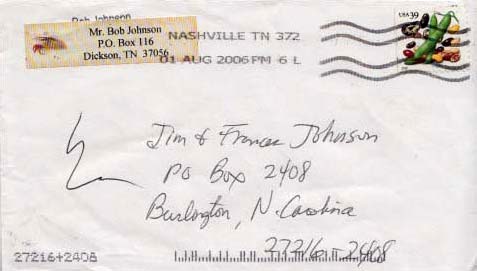 Bob Johnson
Mr. Bob Johnson
P.O. Box 116
Dickson, TN 37056
NASHVILLE TN 372
01 AUG 2006 PM 6 L
USA 39
Jim & Frances Johnson
PO Box 2408
Burlington, N. Carolina
27216-2408
27216+2408